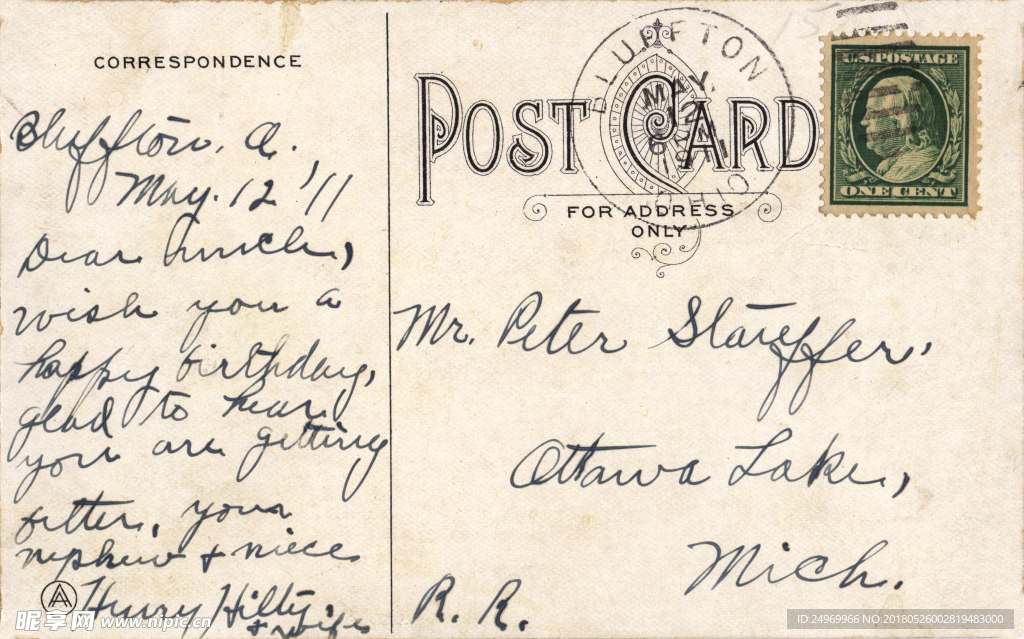 CORRESPONDENCE
Bluffton, O.
May. 12 '11
Dear Uncle,
wish you a
happy birthday,
glad to hear
you are getting
better, your
nephew + niece
Henry Hilty.
+ wife
POST CARD
FOR ADDRESS
ONLY
BLUFFTON
MAY
OHIO
U.S. POSTAGE
ONE CENT
Mr. Peter Stauffer,
Ottawa Lake,
Mich.
R. R.
昵享网 www.nipic.cn
ID:24969966 NO:20180526002819483000